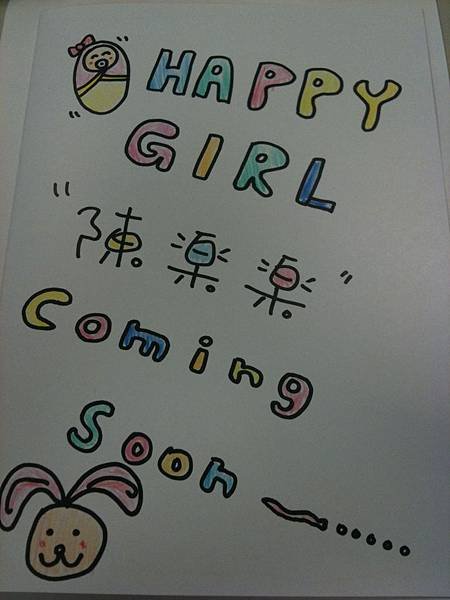 HAPPY
GIRL
"陳楽楽"
Coming
Soon ~.....